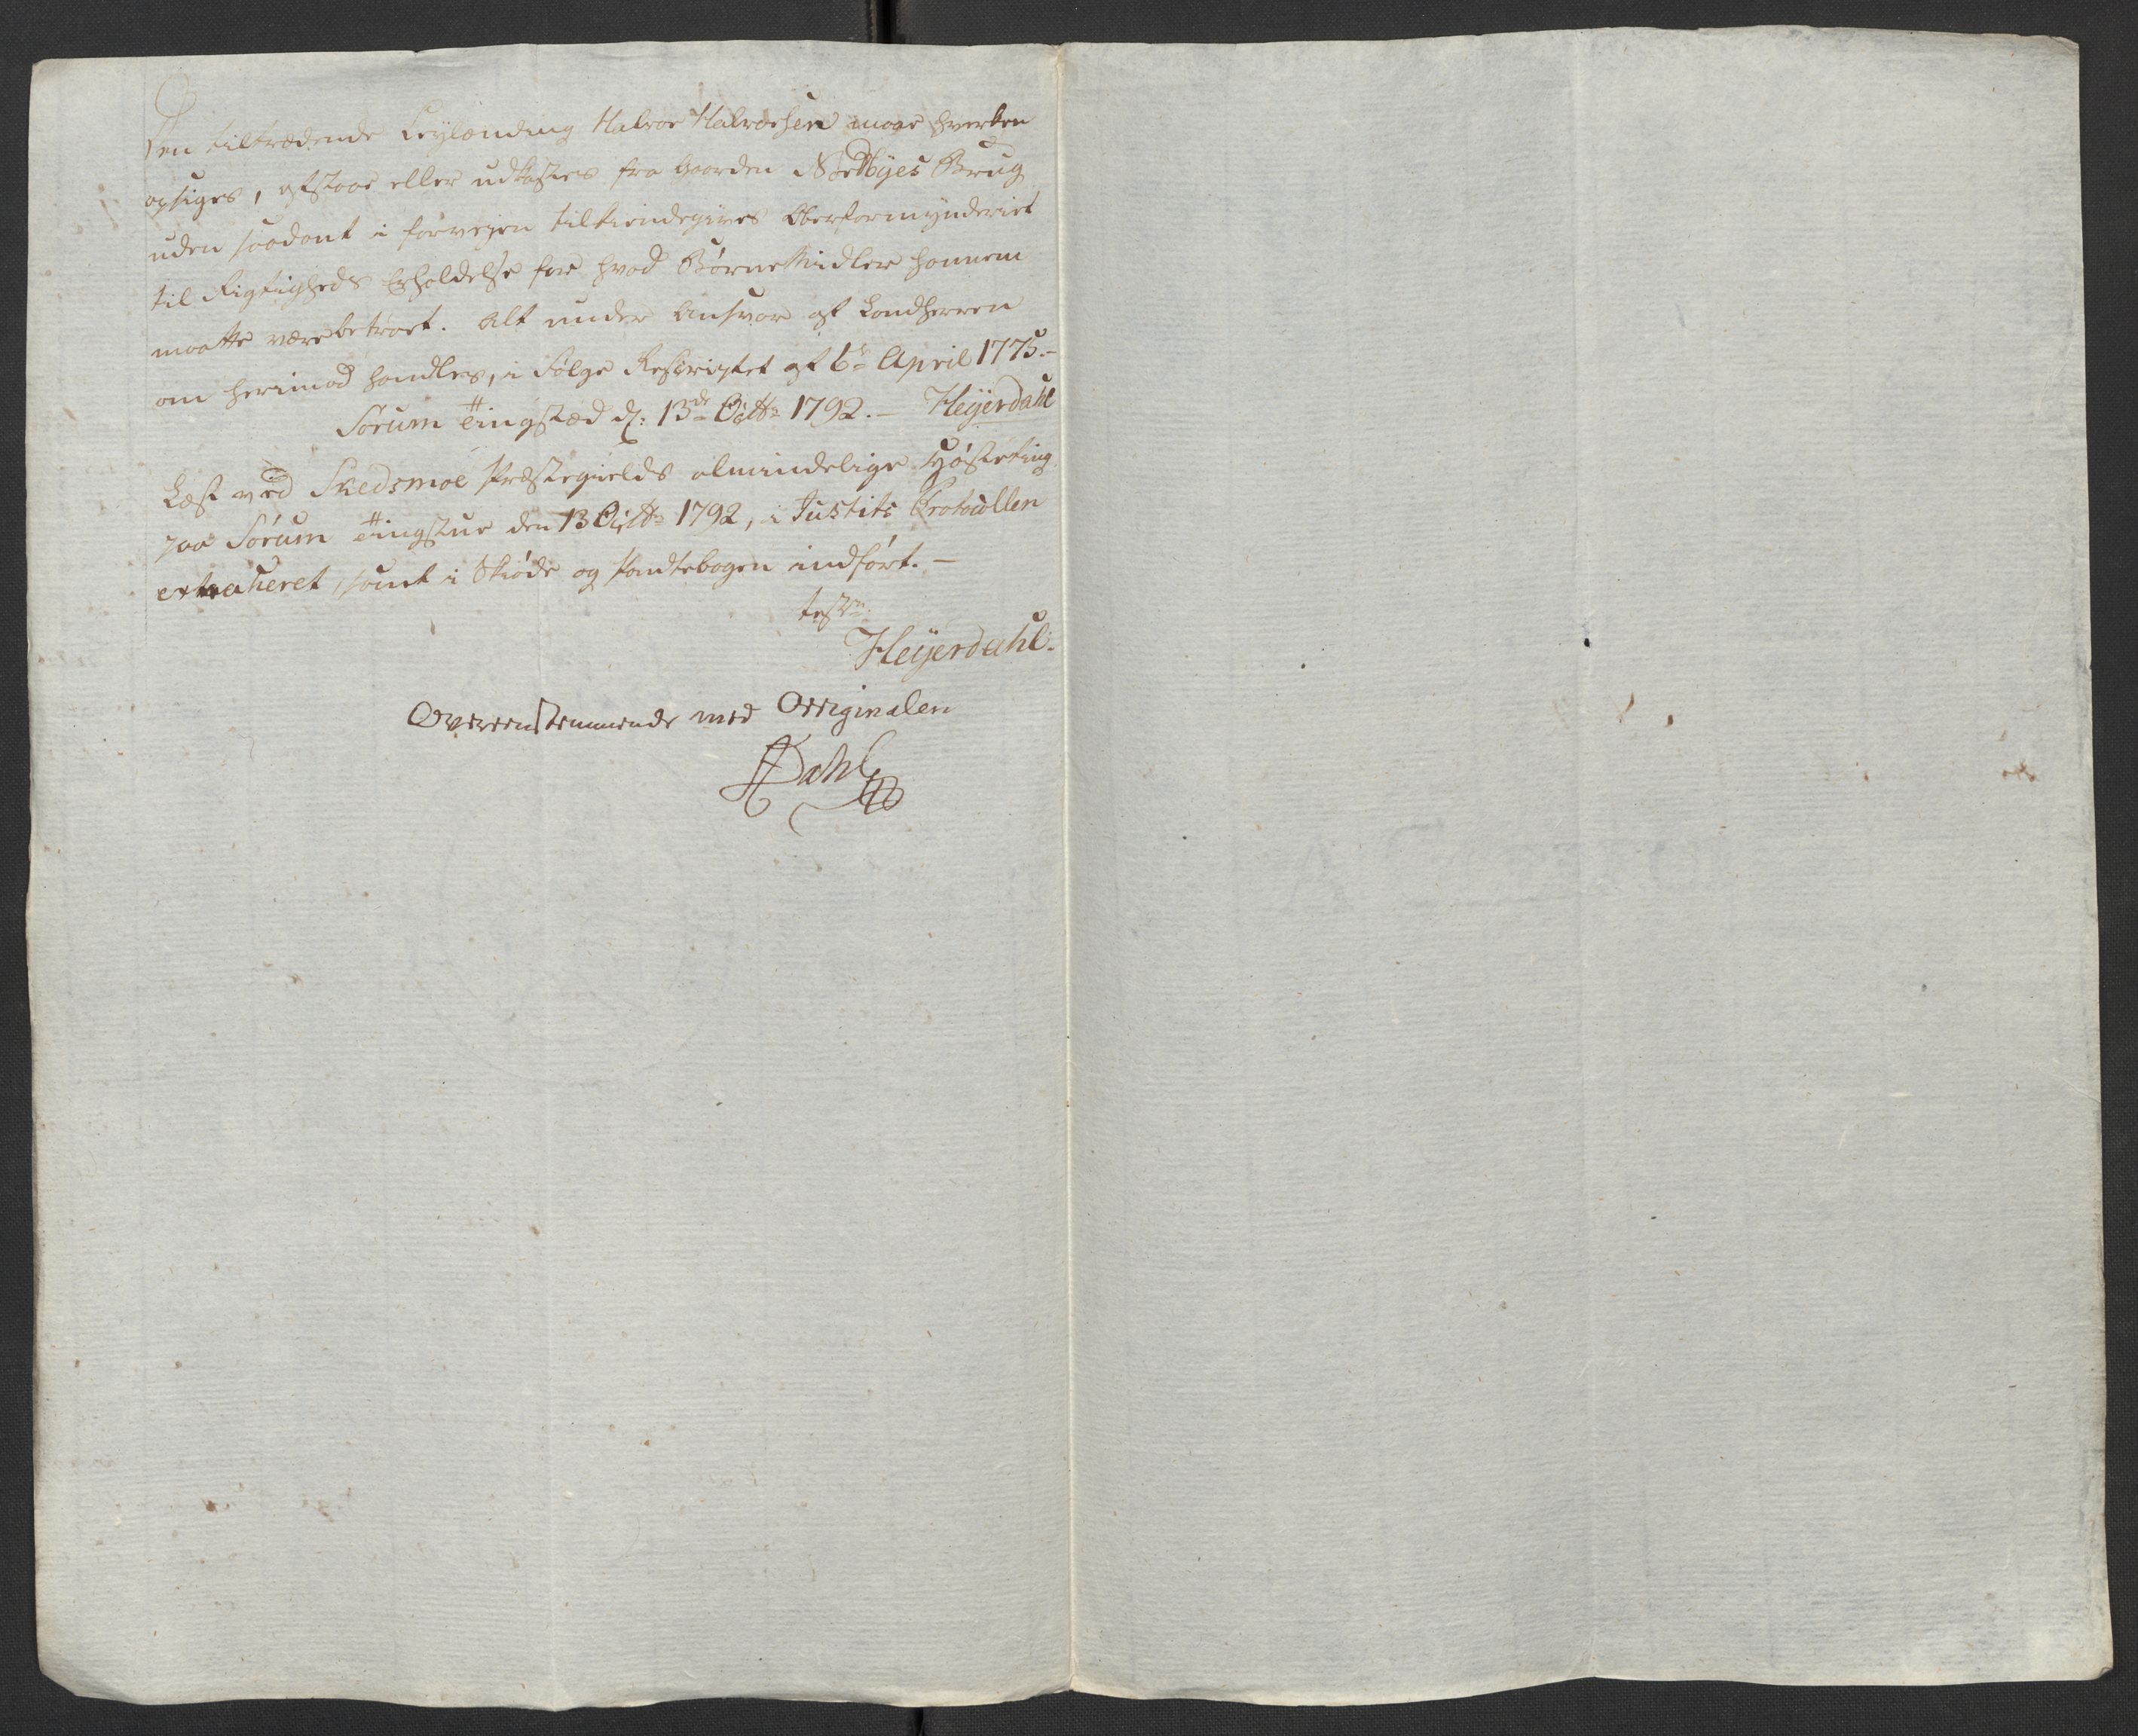 Den tiltrædende Leylænding Halvor Halvorsen maae hverken
opsiges, afstaae eller udkastes fra Gaarden Nordbyes Brug
uden saadant i forvejen tilkiendegives Overformynderiet
til Rigtigheds Erholdelse for hvad Børne Midler hannem
maatte være betroet. Alt under Ansvar af Landherren
om herimod handles, i Følge Rescriptet af 6te April 1775.-
Sørum Tingstæd d: 13de Octbr 1792. - Heyerdahl
Læst ved Skedsmoe Præstegields almindelige Høsteting
paa Sørum Tingstue den 13 Octbr 1792, i Justits Protocollen
extraheret, samt i Skiøde og Pantebogen indført. -
test:
Heyerdahl.
Overeenstemmende med Orriginalen
Dahl